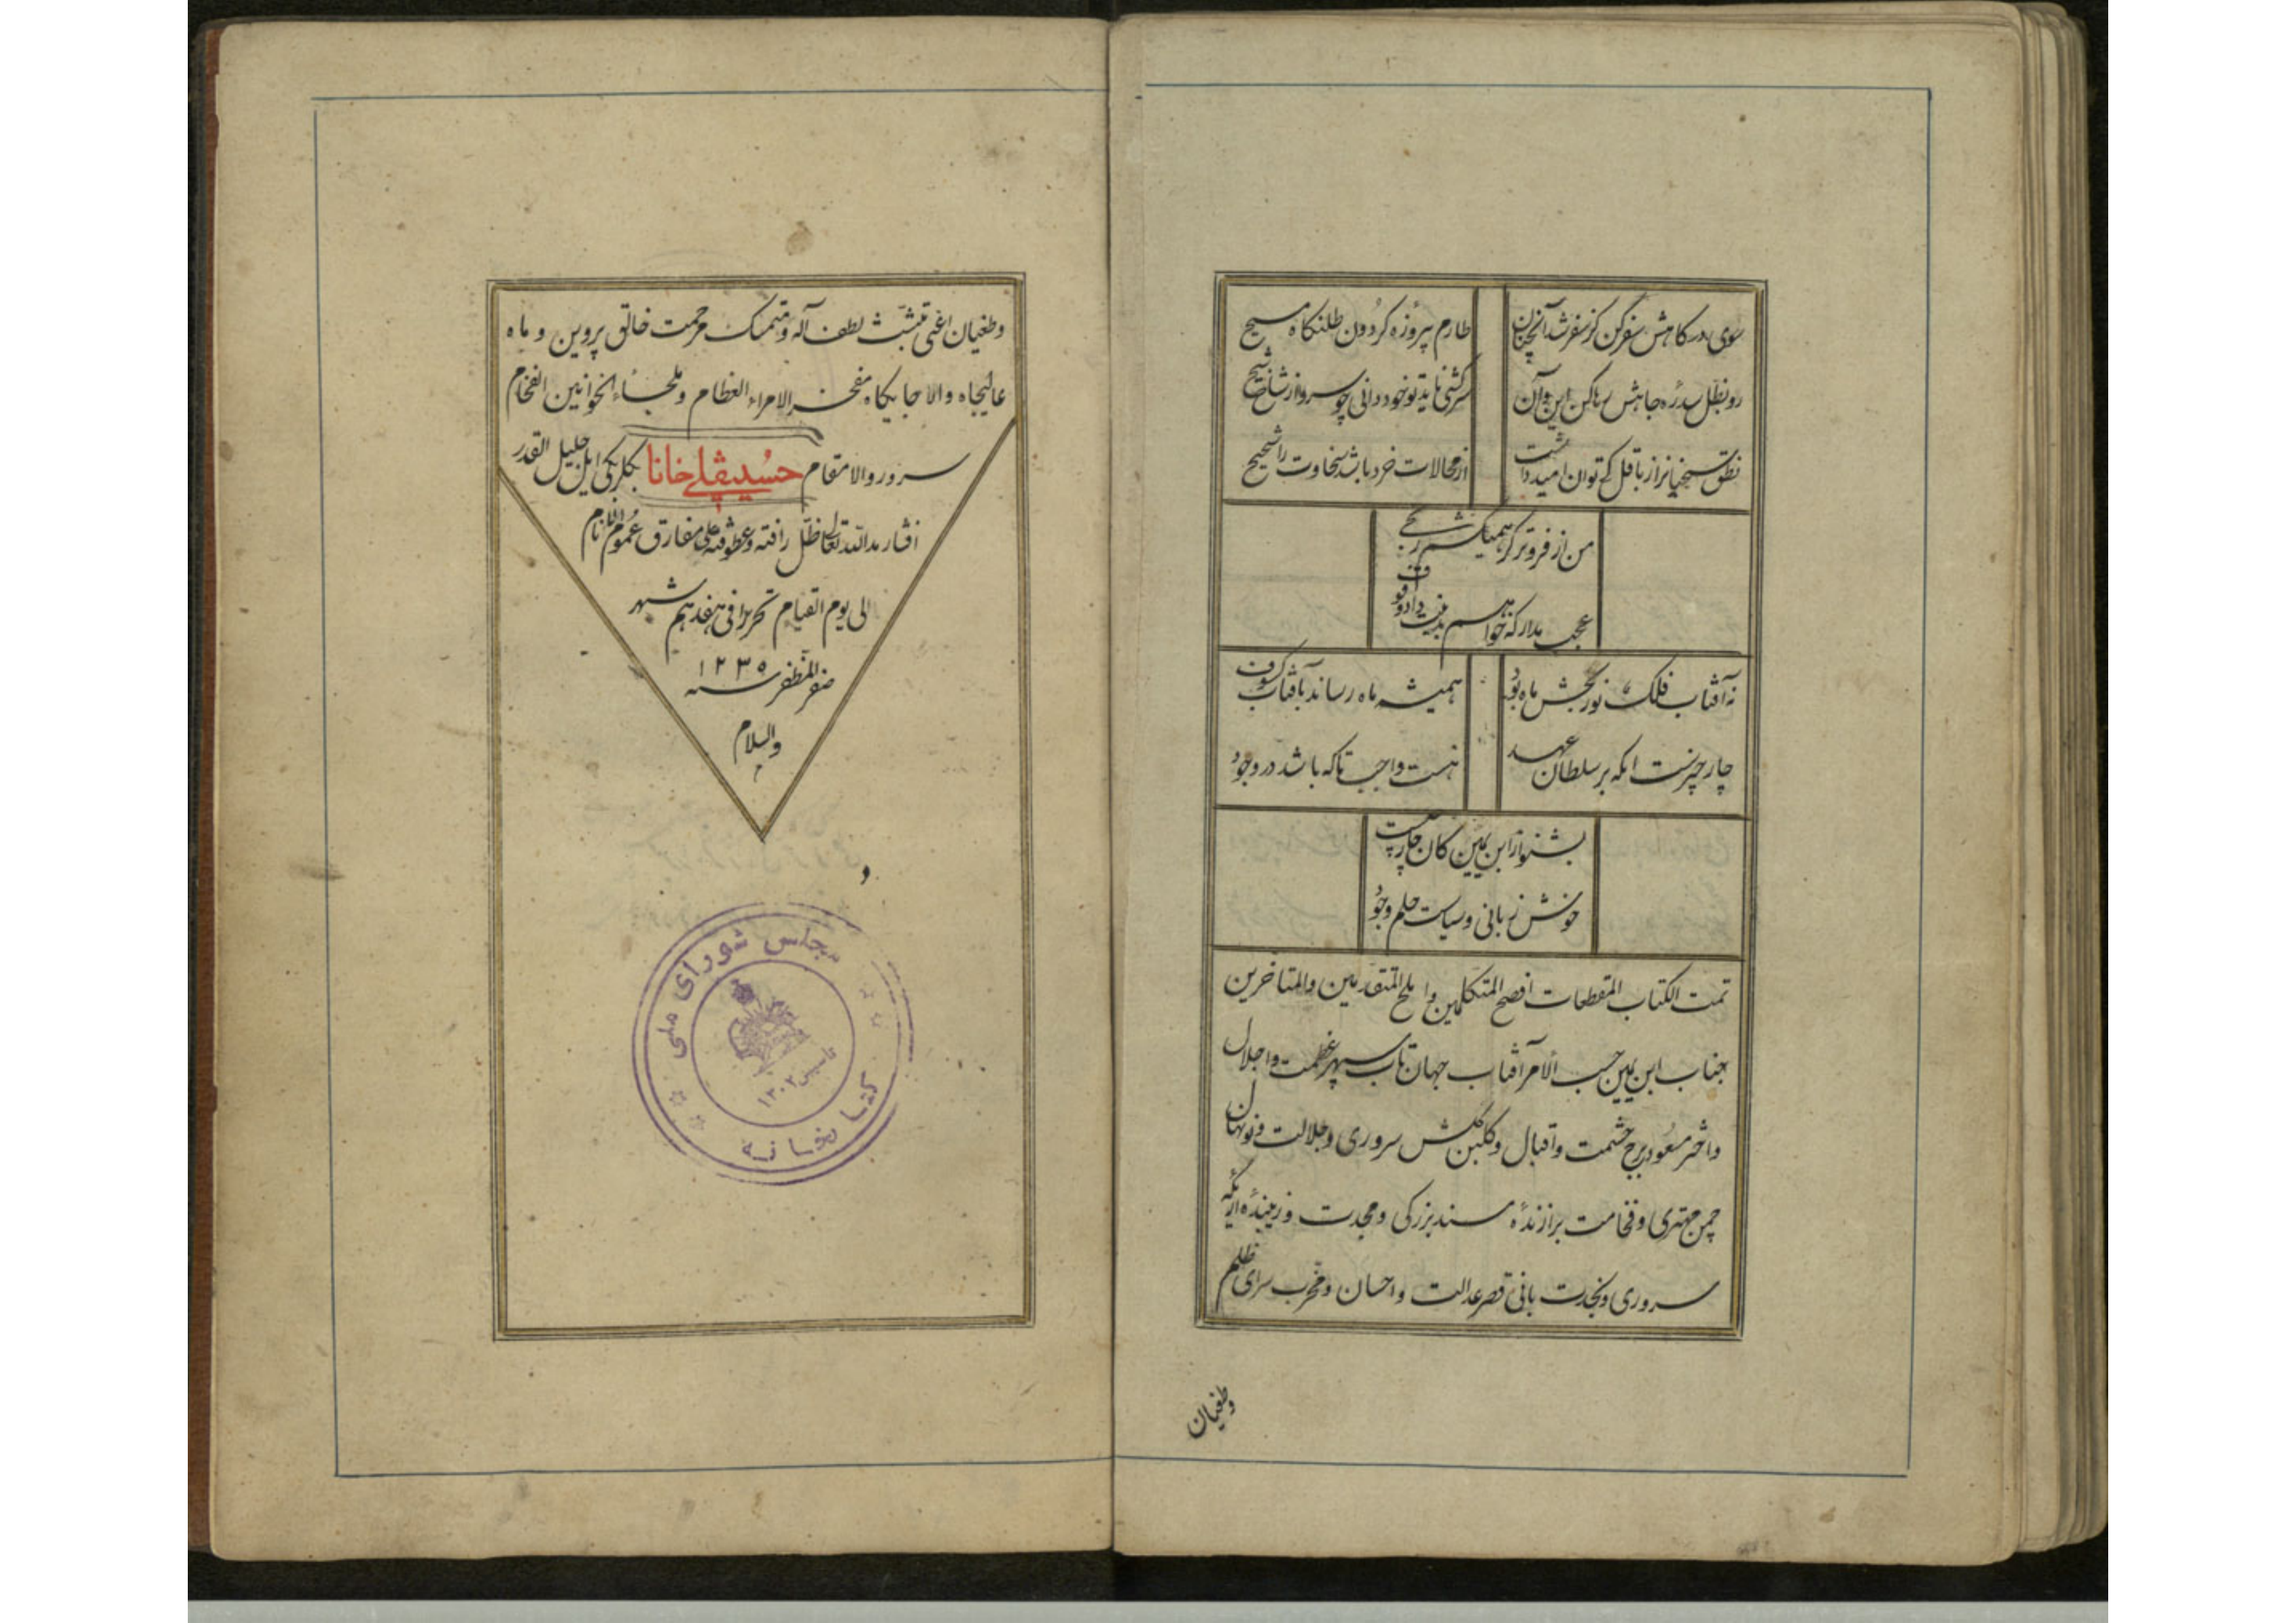 سوی درکاهش سفر کن کز سفر شد آنچنان
طارم پیروزه کردون طلنکاه مسیح
رو بظل سدره جاهش رها کن این و آن
سرکشی ناید تو خود دانی چو سرو از شاخ شیح
نطق سحبانرا ز باقل کی توان امید داشت
از محالات خرد باشد سخاوت را شحیح
من از فروتر
عجب مدار که خواهم بدین
نه آفتاب فلک نور بخش ماه بود
همیشه ماه رساند بآفتاب کسوف
چار چیزست انکه بر سلطان عهد
هست واجب تا که باشد در وجود
بشنو از ابن یمین کان چار چیست
خوش زبانی و سیاست حلم و جود
تمت الکتاب المقطعات افصح المتکلمین و املح المتقدمین والمتاخرین
جناب ابن یمین حسب الامر آفتاب جهان تاب سپهر عظمت و اجلال
و اختر مسعود برج حشمت و اقبال و کلبن کلشن سروری و جلالت و نونهال
چمن مهتری و فخامت برازندهٔ مسند بزرکی و مجدت و زیبندهٔ اریکه
سروری و نجدت بانی قصر عدالت و احسان و مخرب سرای ظلم
وطغیان
وطغیان اعنی متشبث لطف آله و متمسک مرحمت خالق پروین و ماه
عالیجاه والاجایکاه مفخر الامراء العظام و ملجاء الخوانین الفخام
سرور والامقام حسینقلی خانا بکلربکی ایل جلیل القدر
افشار مد الله تعالی ظل رافته و عطوفته علی مفارق عموم الانام
الی یوم القیام تحریرا فی هفدهم شهر
صفر المظفر سنه ۱۲۳۵
والسلام
م
مجلس شورای ملی
تأسیس ۱۳۰۲
کتابخانه